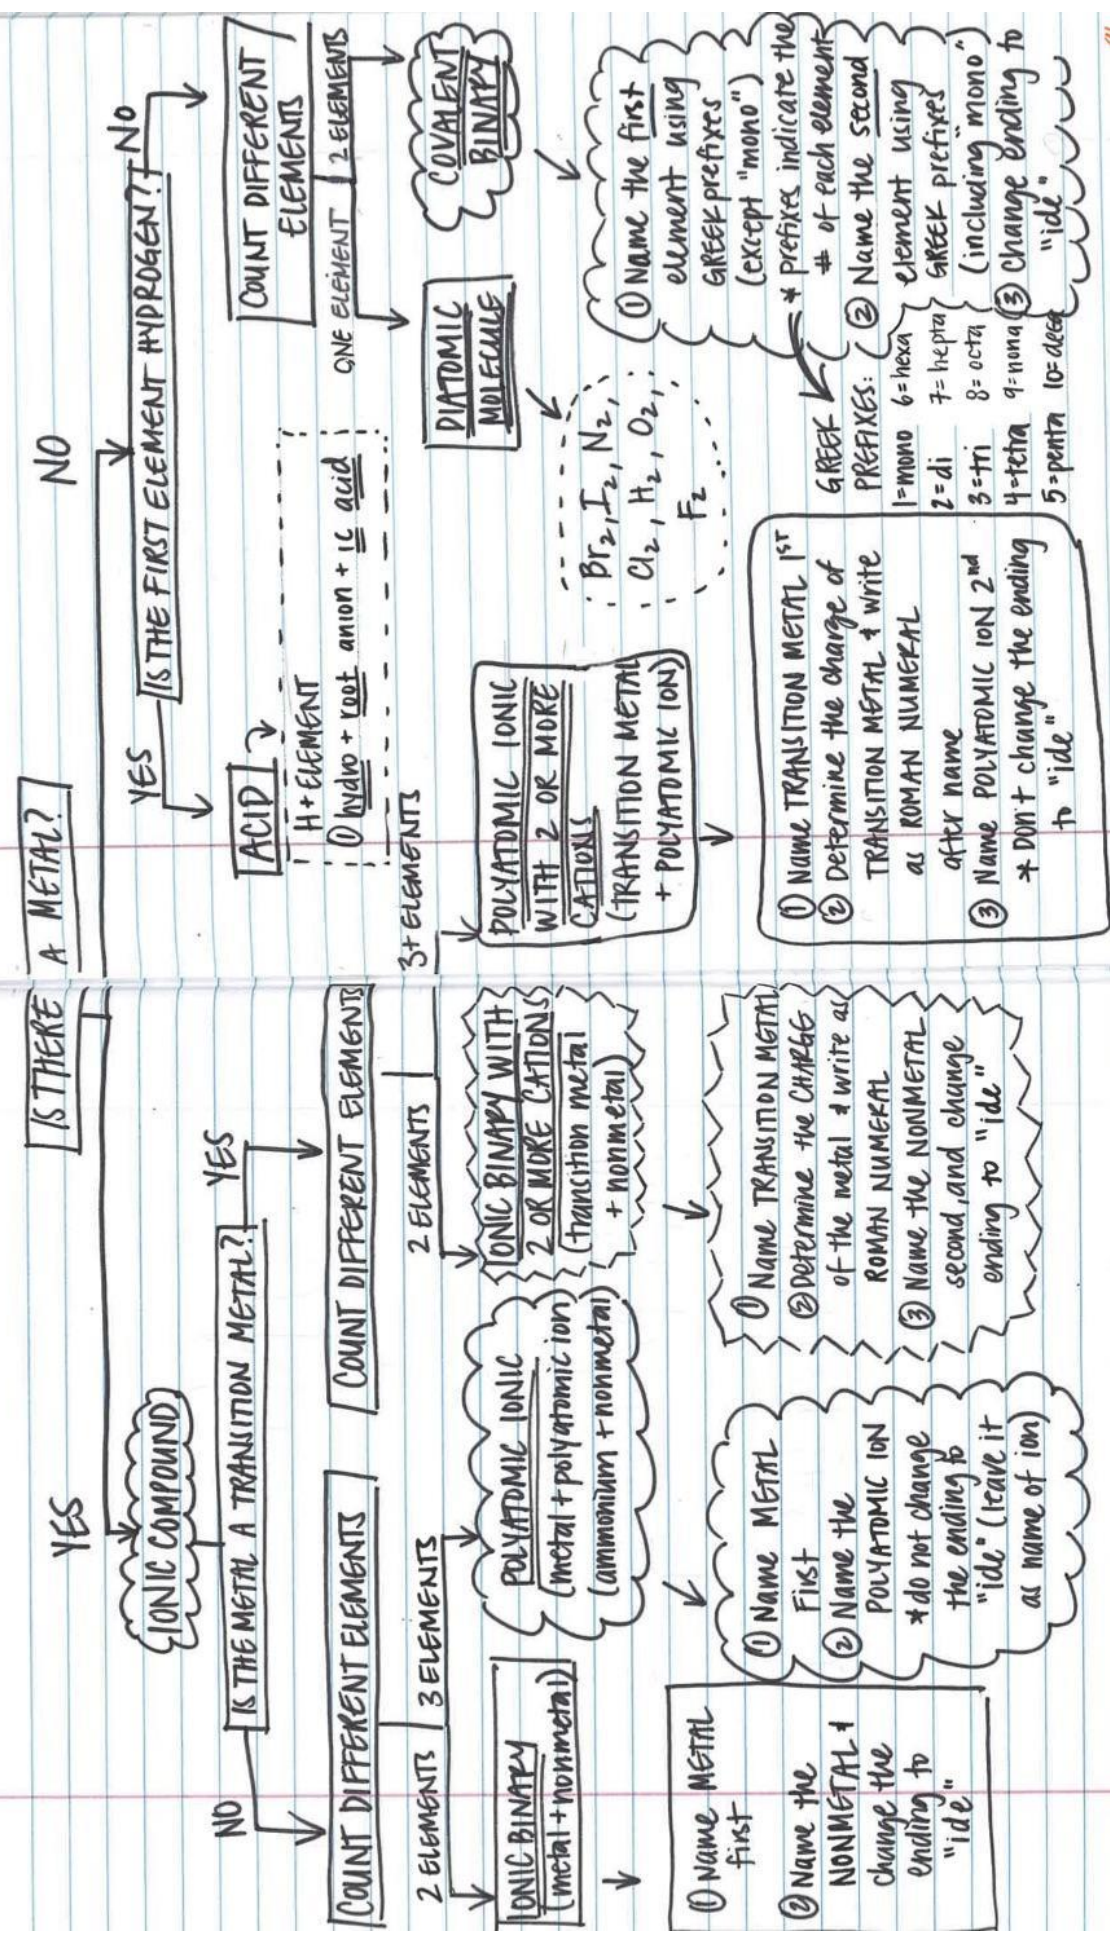 IS THERE A METAL?
YES
NO
IONIC COMPOUND
IS THE METAL A TRANSITION METAL?
NO
YES
COUNT DIFFERENT ELEMENTS
2 ELEMENTS
3 ELEMENTS
IONIC BINARY
(metal + nonmetal)
① Name METAL
first
② Name the
NONMETAL &
change the
ending to
"ide"
POLYATOMIC IONIC
(metal + polyatomic ion)
(ammonium + nonmetal)
① Name METAL
First
② Name the
POLYATOMIC ION
* do not change
the ending to
"ide" (leave it
as name of ion)
COUNT DIFFERENT ELEMENTS
2 ELEMENTS
3+ ELEMENTS
IONIC BINARY WITH
2 OR MORE CATIONS
(transition metal
+ nonmetal)
① Name TRANSITION METAL
② Determine the CHARGE
of the metal & write as
ROMAN NUMERAL
③ Name the NONMETAL
second, and change
ending to "ide"
POLYATOMIC IONIC
WITH 2 OR MORE
CATIONS
(TRANSITION METAL
+ POLYATOMIC ION)
① Name TRANSITION METAL 1ST
② Determine the charge of
TRANSITION METAL & write
as ROMAN NUMERAL
after name
③ Name POLYATOMIC ION 2nd
* Don't change the ending
to "ide"
IS THE FIRST ELEMENT HYDROGEN?
YES
NO
ACID
H + ELEMENT
① hydro + root anion + ic acid
COUNT DIFFERENT
ELEMENTS
ONE ELEMENT
2 ELEMENTS
DIATOMIC
MOLECULE
Br2, I2, N2,
Cl2, H2, O2,
F2
COVALENT
BINARY
① Name the first
element using
GREEK prefixes
(except "mono")
* prefixes indicate the
# of each element
② Name the second
element using
GREEK prefixes
(including "mono")
③ Change ending to
"ide"
GREEK
PREFIXES:
1=mono 6=hexa
2=di 7=hepta
3=tri 8=octa
4=tetra 9=nona
5=penta 10=deca